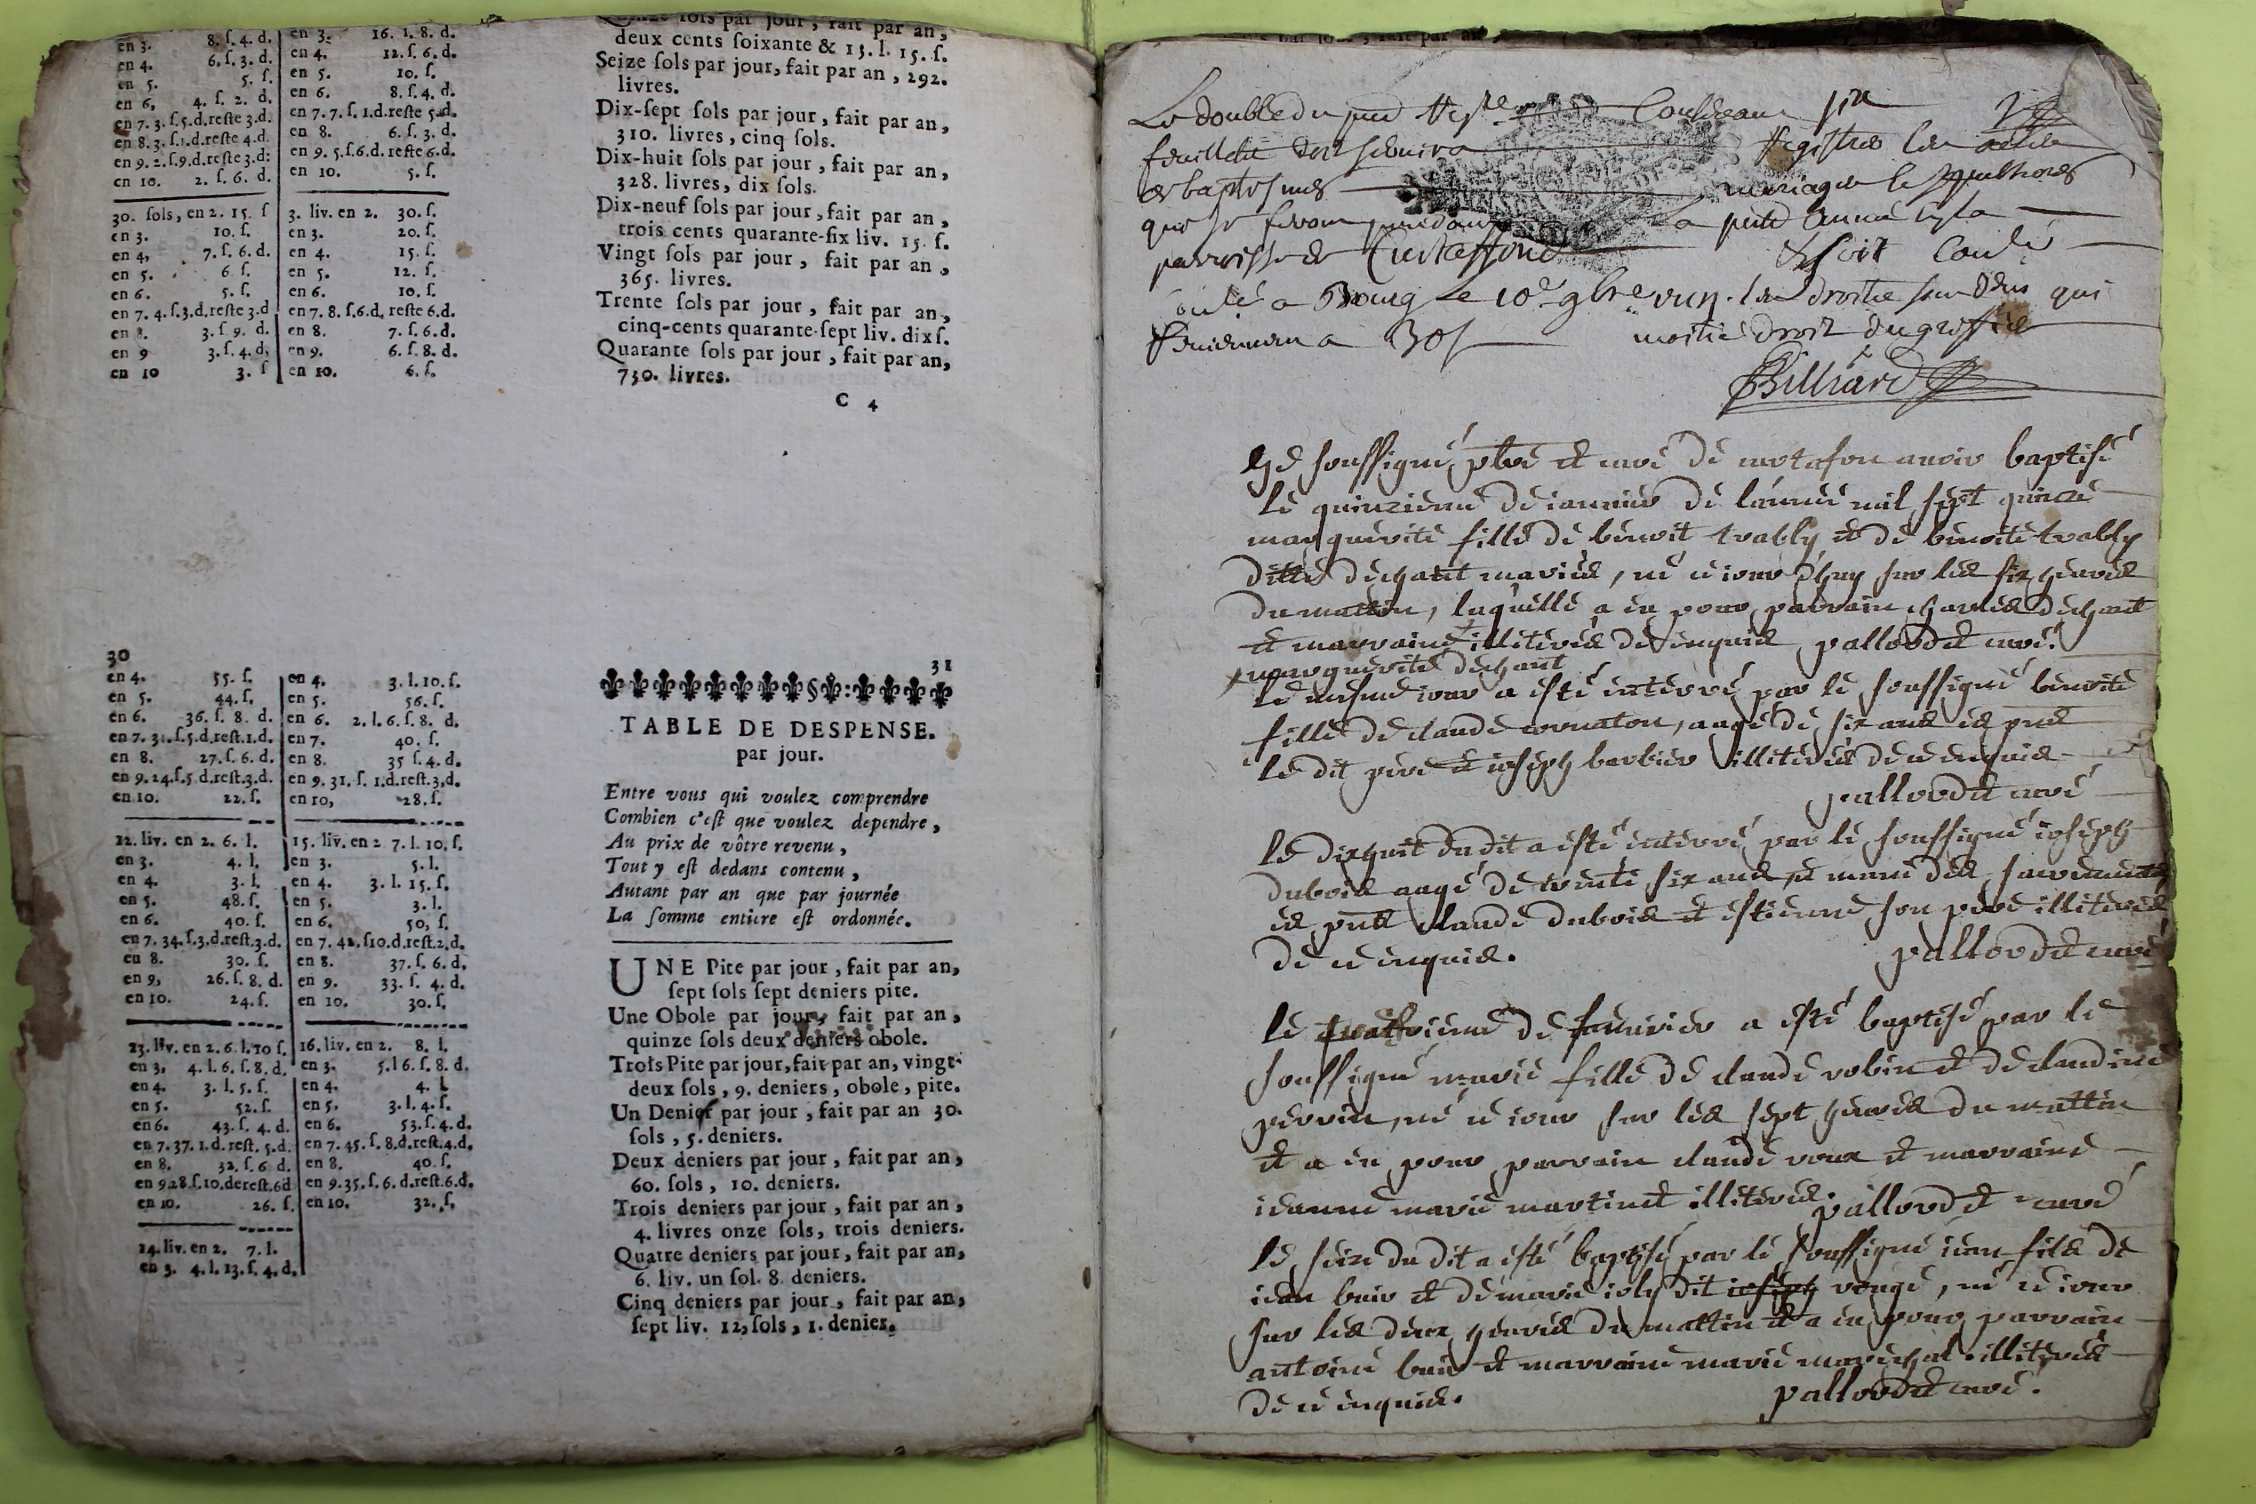 en 3. 8. ſ. 4. d.
en 4. 6. ſ. 3. d.
en 5. 5. ſ.
en 6, 4. ſ. 2. d.
en 7. 3. ſ. 5. d. reſte 3. d.
en 8. 3. ſ. 1. d. reſte 4. d.
en 9. 2. ſ. 9. d. reſte 3. d:
en 10. 2. ſ. 6. d.
30. ſols, en 2. 15. ſ
en 3. 10. ſ.
en 4, 7. ſ. 6. d.
en 5. 6 ſ.
en 6. 5. ſ.
en 7. 4. ſ. 3. d. reſte 3. d
en 8. 3. ſ. 9. d.
en 9 3. ſ. 4. d,
en 10 3. ſ
en 3. 16. ſ. 8. d.
en 4. 12. ſ. 6. d.
en 5. 10. ſ.
en 6. 8. ſ. 4. d.
en 7. 7. ſ. 1. d. reſte 5. d.
en 8. 6. ſ. 3. d.
en 9. 5. ſ. 6. d. reſte 6. d.
en 10. 5. ſ.
3. liv. en 2. 30. ſ.
en 3. 20. ſ.
en 4. 15. ſ.
en 5. 12. ſ.
en 6. 10. ſ.
en 7. 8. ſ. 6. d. reſte 6. d.
en 8. 7. ſ. 6. d.
en 9. 6. ſ. 8. d.
en 10. 6. ſ.
Quinze ſols par jour, fait par an,
deux cents ſoixante & 13. l. 15. ſ.
Seize ſols par jour, fait par an, 292.
livres.
Dix-ſept ſols par jour, fait par an,
310. livres, cinq ſols.
Dix-huit ſols par jour, fait par an,
328. livres, dix ſols.
Dix-neuf ſols par jour, fait par an,
trois cents quarante-ſix liv. 15. ſ.
Vingt ſols par jour, fait par an,
365. livres.
Trente ſols par jour, fait par an,
cinq-cents quarante-ſept liv. dix ſ.
Quarante ſols par jour, fait par an,
730. livres.
C 4
30
en 4. 55. ſ.
en 5. 44. ſ.
en 6. 36. ſ. 8. d.
en 7. 31. ſ. 5. d. reſt. 1. d.
en 8. 27. ſ. 6. d.
en 9. 24. ſ. 5 d. reſt. 3. d.
en 10. 22. ſ.
12. liv. en 2. 6. l.
en 3. 4. l.
en 4. 3. l.
en 5. 48. ſ.
en 6. 40. ſ.
en 7. 34. ſ. 3. d. reſt. 3. d.
en 8. 30. ſ.
en 9, 26. ſ. 8. d.
en 10. 24. ſ.
13. liv. en 2. 6. l. 10 ſ.
en 3, 4. l. 6. ſ. 8. d.
en 4. 3. l. 5. ſ.
en 5. 52. ſ.
en 6. 43. ſ. 4. d.
en 7. 37. 1. d. reſt. 5. d.
en 8. 32. ſ. 6 d.
en 9 28. ſ. 10. de reſt. 6 d
en 10. 26. ſ.
14. liv. en 2. 7. l.
en 3. 4. l. 13. ſ. 4. d.
en 4. 3. l. 10. ſ.
en 5. 56. ſ.
en 6. 2. l. 6. ſ. 8. d.
en 7. 40. ſ.
en 8. 35 ſ. 4. d.
en 9. 31. ſ. 1. d. reſt. 3, d.
en 10, 28. ſ.
15. liv. en 2 7. l. 10. ſ.
en 3. 5. l.
en 4. 3. l. 15. ſ.
en 5. 3. l.
en 6. 50, ſ.
en 7. 42. ſ 10. d. reſt. 2. d.
en 8. 37. ſ. 6. d.
en 9. 33. ſ. 4. d.
en 10. 30. ſ.
16. liv. en 2. 8. l.
en 3. 5. l 6. ſ. 8. d.
en 4. 4. l.
en 5. 3. l. 4. ſ.
en 6. 53. ſ. 4. d.
en 7. 45. ſ. 8. d. reſt. 4. d.
en 8. 40. ſ.
en 9. 35. ſ. 6. d. reſt. 6. d.
en 10. 32. ſ.
31
TABLE DE DESPENSE.
par jour.
Entre vous qui voulez comprendre
Combien c'eſt que voulez dependre,
Au prix de vôtre revenu,
Tout y eſt dedans contenu,
Autant par an que par journée
La ſomme entiere eſt ordonnée.
UNE Pite par jour, fait par an,
ſept ſols ſept deniers pite.
Une Obole par jour, fait par an,
quinze ſols deux deniers obole.
Trois Pite par jour, fait par an, vingt-
deux ſols, 9. deniers, obole, pite.
Un Denier par jour, fait par an 30.
ſols, 5. deniers.
Deux deniers par jour, fait par an,
60. ſols, 10. deniers.
Trois deniers par jour, fait par an,
4. livres onze ſols, trois deniers.
Quatre deniers par jour, fait par an,
6. liv. un ſol. 8. deniers.
Cinq deniers par jour, fait par an,
ſept liv. 12, ſols, 1. denier.
Le double du
feuillets doit servir a registrer les
et baptesmes mariages et
que se feront pendant la année
parroisse de Curtasfond
a Bourg le 10e 9bre droits
a 30s moitié droit du greffier
Billiard
Je soussigné, pbre et curé de curtafon avoir baptisé
le quinzieme de ianvier de lannée mil sept quinze
marguerite fille de benoit trably et de benoite trably
ditte dechant mariés, né ce iour dhuy sur les six heures
du mattin, laquelle a eu pour parrain charles dechant
et marraine illiterés de ce enquis pallordet curé.
marguerite dechant
le mesme iour a esté enterré par le soussigné benoite
fille de claude cornaton, aagé de six ans es pnts
le dit pere et ioseph barbier illiterés de ce enquis
pallordet curé
le dixhuit dudit a esté enterré par le soussigné ioseph
dubois aagé de trente six ans, et muni des sacrements
es pnts claude dubois et estienne son pere illiterés
de ce enquis. pallordet curé
le quatrieme de feuvrier a esté baptisé par le
soussigné marie fille de claude robin et de claudine
perrin, né ce iour sur les sept heures du mattin
et a eu pour parrain claude roux et marraine
ieanne marie martinet illiterés. pallordet curé
le seize du dit a esté baptisé par le soussigné iean fils de
iean buis et de marie ioly dit ioseph rouge, né ce iour
sur les deux heures du mattin et a eu pour parrain
antoine buis et marraine marie marechal. illiterés
de ce enquis. pallordet curé.